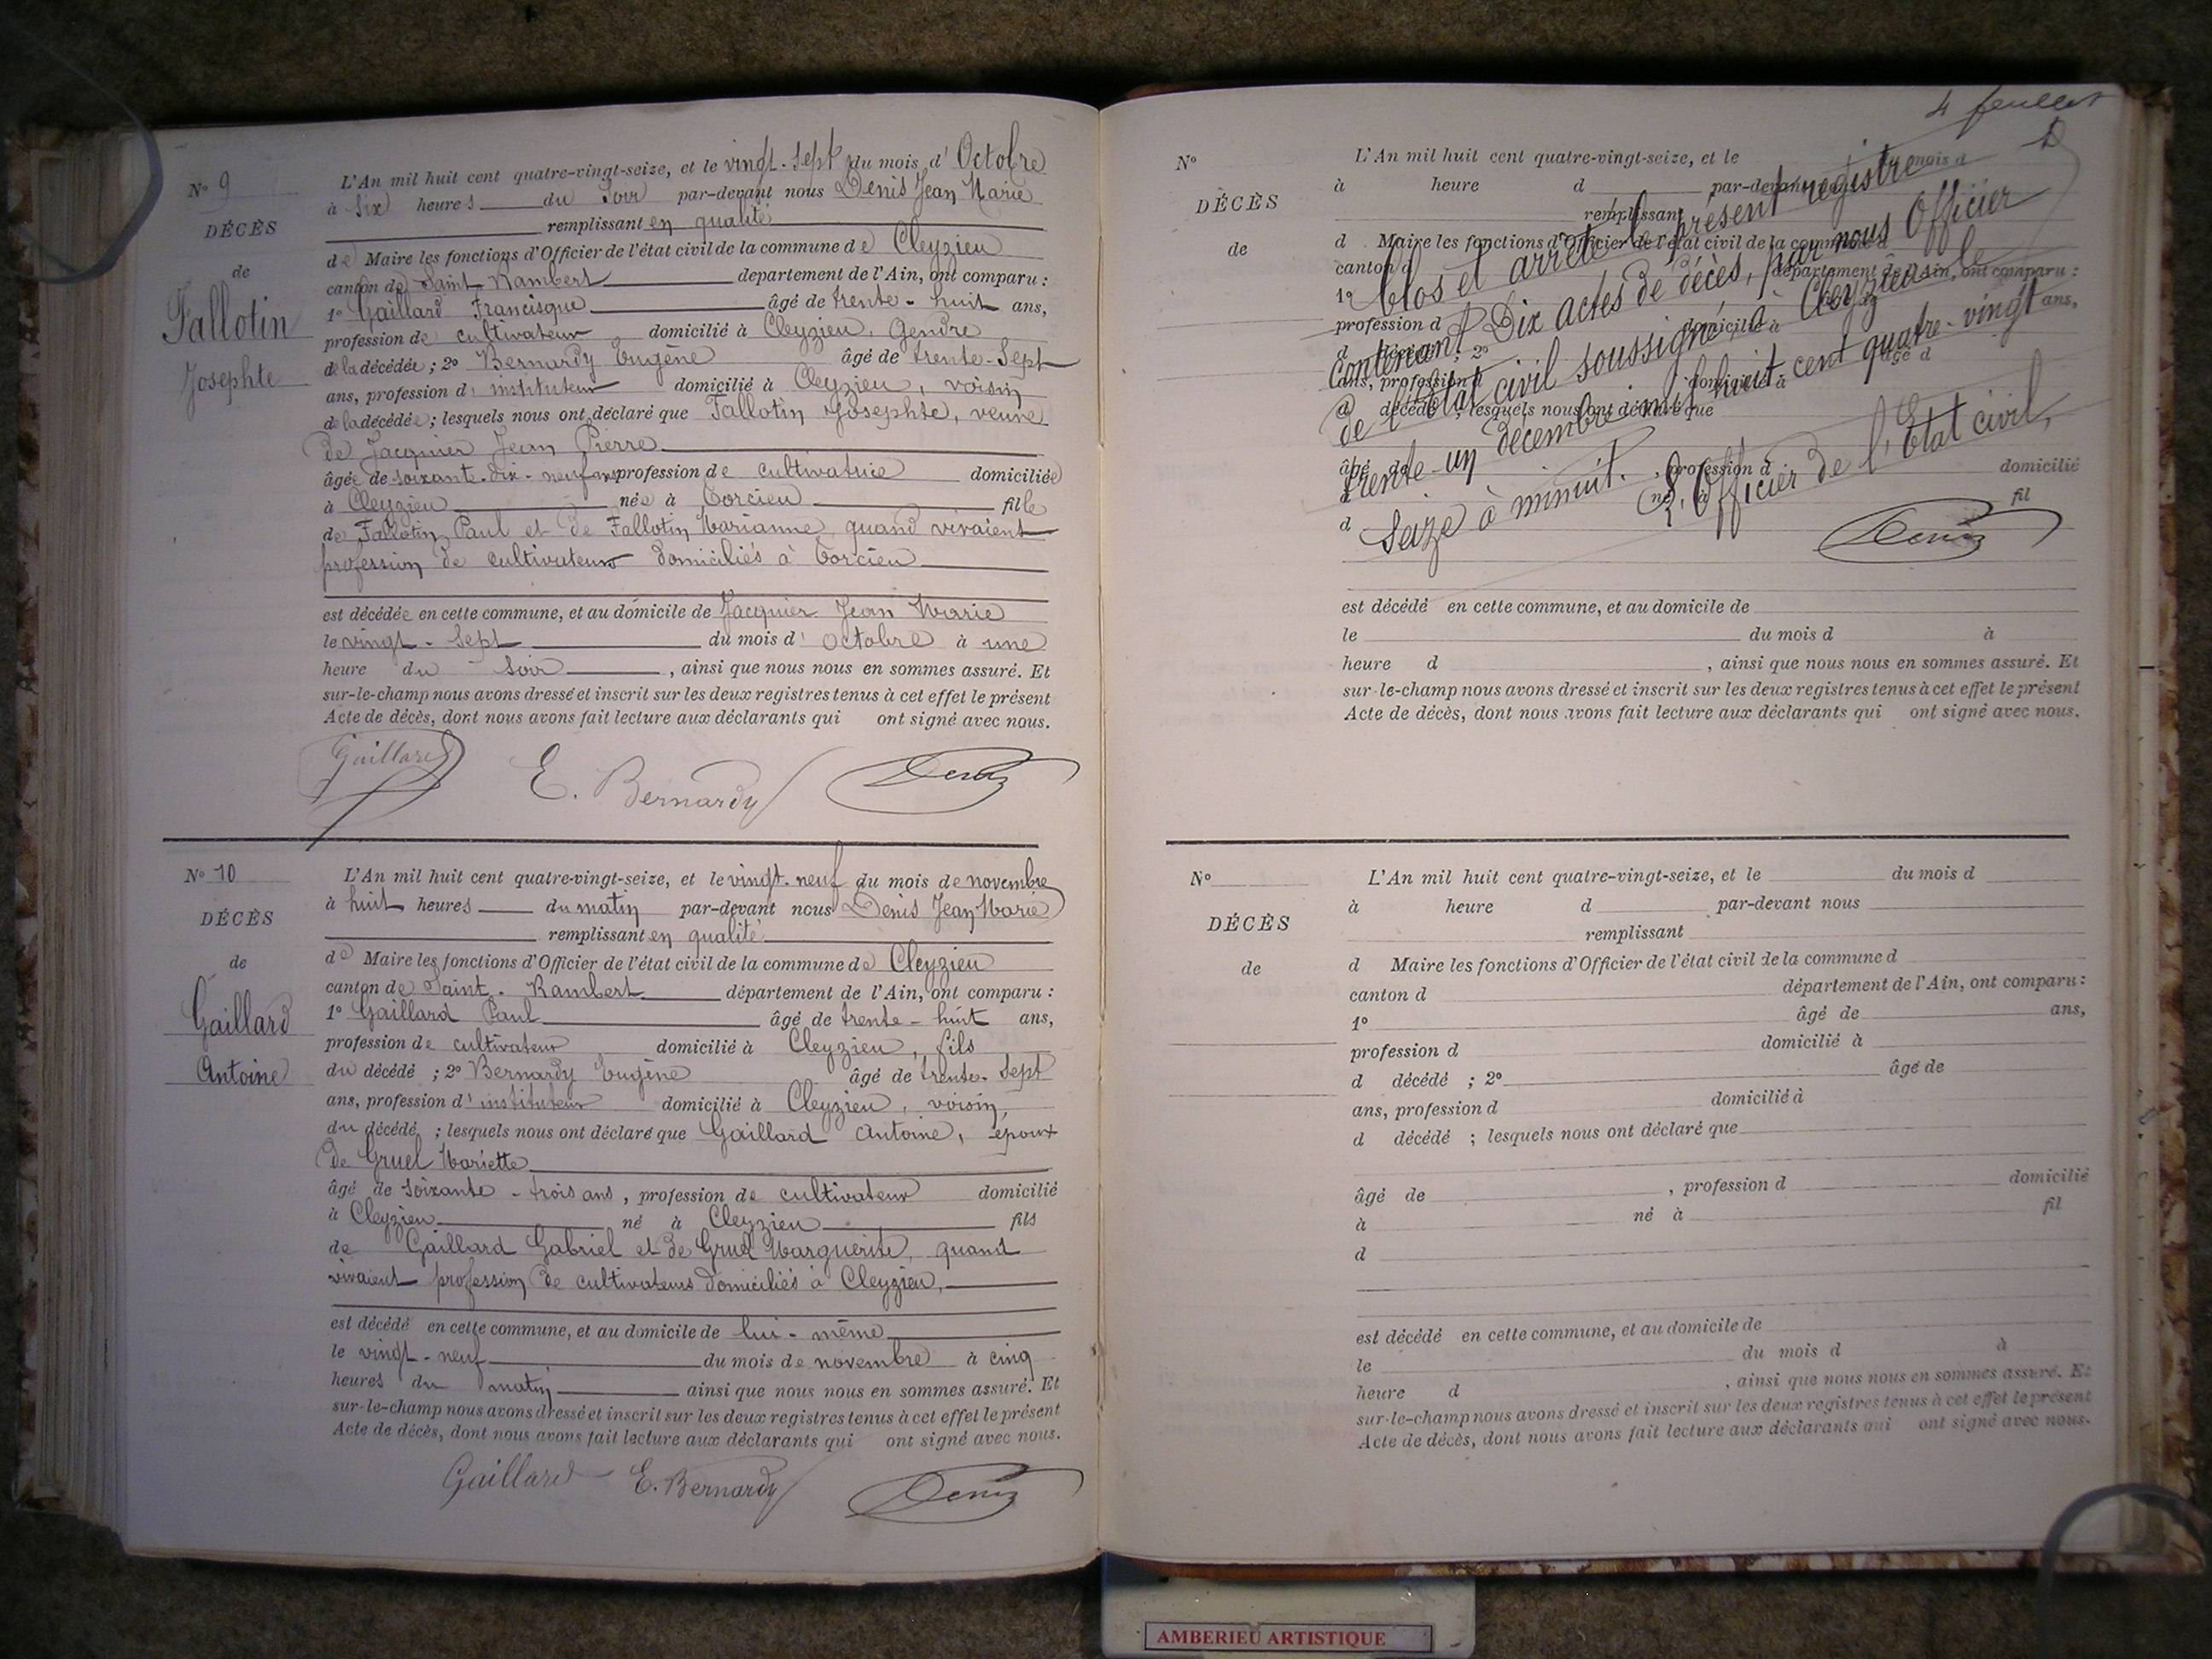 N° 9
DÉCÈS
de
Fallotin
Josephte
L'An mil huit cent quatre-vingt-seize, et le vingt-sept du mois d'Octobre
à six heures du soir par-devant nous Denis Jean Marie
remplissant en qualité
de Maire les fonctions d'Officier de l'état civil de la commune de Cleyzieu
canton de Saint-Rambert département de l'Ain, ont comparu :
1° Gaillard Francisque âgé de trente-huit ans,
profession de cultivateur domicilié à Cleyzieu, Gendre
de la décédée ; 2° Bernardy Eugène âgé de trente-sept
ans, profession d'instituteur domicilié à Cleyzieu, voisin
de la décédée ; lesquels nous ont déclaré que Fallotin Josephte, veuve
de Jacquier Jean Pierre
âgée de soixante-dix-neuf ans profession de cultivatrice domiciliée
à Cleyzieu née à Torcieu fille
de Fallotin Paul et de Fallotin Marianne, quand vivaient
profession de cultivateurs domiciliés à Torcieu
est décédée en cette commune, et au domicile de Jacquier Jean Marie
le vingt-sept du mois d'Octobre à une
heure du soir, ainsi que nous nous en sommes assuré. Et
sur-le-champ nous avons dressé et inscrit sur les deux registres tenus à cet effet le présent
Acte de décès, dont nous avons fait lecture aux déclarants qui ont signé avec nous.
Gaillard E. Bernardy Denis
N° 10
DÉCÈS
de
Gaillard
Antoine
L'An mil huit cent quatre-vingt-seize, et le vingt-neuf du mois de novembre
à huit heures du matin par-devant nous Denis Jean Marie
remplissant en qualité
de Maire les fonctions d'Officier de l'état civil de la commune de Cleyzieu
canton de Saint-Rambert département de l'Ain, ont comparu :
1° Gaillard Paul âgé de trente-huit ans,
profession de cultivateur domicilié à Cleyzieu, fils
du décédé ; 2° Bernardy Eugène âgé de trente-sept
ans, profession d'instituteur domicilié à Cleyzieu, voisin,
du décédé ; lesquels nous ont déclaré que Gaillard Antoine, époux
de Gruel Mariette
âgé de soixante-trois ans, profession de cultivateur domicilié
à Cleyzieu né à Cleyzieu fils
de Gaillard Gabriel et de Gruel Marguerite, quand
vivaient profession de cultivateurs domiciliés à Cleyzieu,
est décédé en cette commune, et au domicile de lui-même
le vingt-neuf du mois de novembre à cinq
heures du matin ainsi que nous nous en sommes assuré. Et
sur-le-champ nous avons dressé et inscrit sur les deux registres tenus à cet effet le présent
Acte de décès, dont nous avons fait lecture aux déclarants qui ont signé avec nous.
Gaillard E. Bernardy Denis
4 feuillet
D
N°
DÉCÈS
de
L'An mil huit cent quatre-vingt-seize, et le mois d
à heure d par-devant
remplissant
d Maire les fonctions d'Officier de l'état civil de la commune d
canton d département de l'Ain, ont comparu :
1° ans,
profession d domicilié à
d décédé ; 2° âgé d
ans, profession d domicilié à
d décédé ; lesquels nous ont déclaré que
âgé de , profession d domicilié
à né à fil
d
Clos et arrêté le présent registre
contenant Dix actes de décès, par nous Officier
de l'État civil soussigné, à Cleyzieu le
trente-un décembre mil huit cent quatre-vingt
seize à minuit.
L'Officier de l'État civil,
Denis
est décédé en cette commune, et au domicile de
le du mois d à
heure d , ainsi que nous nous en sommes assuré. Et
sur-le-champ nous avons dressé et inscrit sur les deux registres tenus à cet effet le présent
Acte de décès, dont nous avons fait lecture aux déclarants qui ont signé avec nous.
N°
DÉCÈS
de
L'An mil huit cent quatre-vingt-seize, et le du mois d
à heure d par-devant nous
remplissant
d Maire les fonctions d'Officier de l'état civil de la commune d
canton d département de l'Ain, ont comparu :
1° âgé de ans,
profession d domicilié à
d décédé ; 2° âgé de
ans, profession d domicilié à
d décédé ; lesquels nous ont déclaré que
âgé de , profession d domicilié
à né à fil
d
est décédé en cette commune, et au domicile de
le du mois d à
heure d , ainsi que nous nous en sommes assuré. Et
sur-le-champ nous avons dressé et inscrit sur les deux registres tenus à cet effet le présent
Acte de décès, dont nous avons fait lecture aux déclarants qui ont signé avec nous.
AMBERIEU ARTISTIQUE